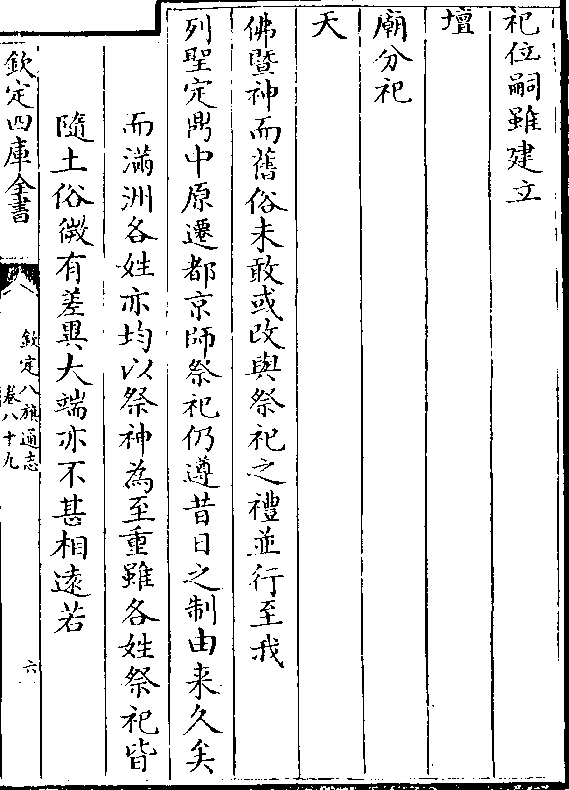 祀位嗣雖建立
壇
廟分祀
天
佛暨神而舊俗未敢或改與祭祀之禮並行至我
列聖定鼎中原遷都京師祭祀仍遵昔日之制由来久矣
而滿洲各姓亦均以祭神為至重雖各姓祭祀皆
隨土俗微有差異大端亦不甚相遠若
欽定四庫全書
欽定八旗通志
卷八十九
六